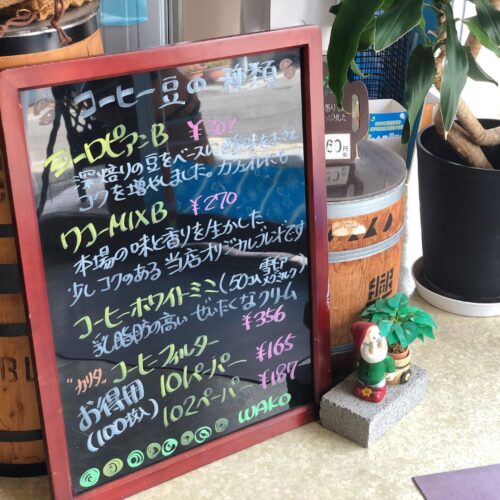 コーヒー豆の種類
ヨーロピアンB ¥303
深焙りの豆をベースに
コクを増やしました。カフェオレにも
ワコーMIXB ¥270
本場の味と香りを生かした
少しコクのある当店オリジナルブレンドです
コーヒーホワイトミニ(50コ入 雪印
乳脂肪の高いぜいたくなクリーム
¥356
"カリタ" コーヒーフィルター
お得用 101ペーパー ¥165
(100枚入) 102ペーパー ¥187
WAKO